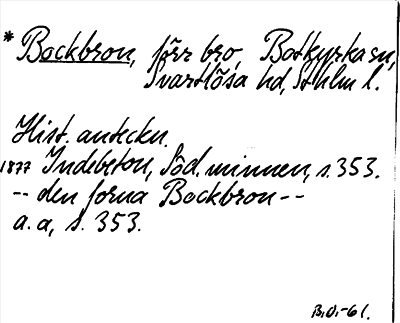 * Bockbron, förr bro, Botkyrka sn,
Svartlösa hd, Sthlm l.
Hist. anteckn.
1877 Indebetou, Söd. minnen, s. 353.
-- den forna Bockbron --
a.a, s. 353.
B.O.-61.